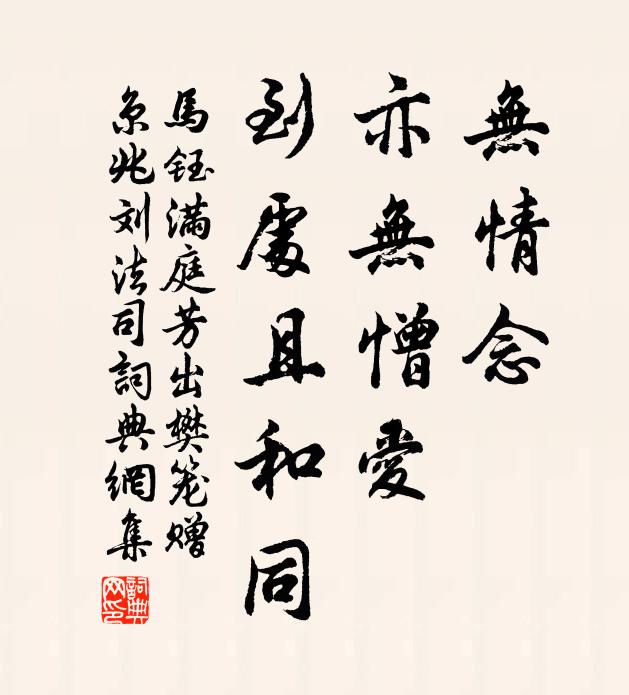 無情念
亦無憎愛
到處且和同
馬鈺满庭芳出樊笼赠
京兆刘法司詞典網集
詞典网印